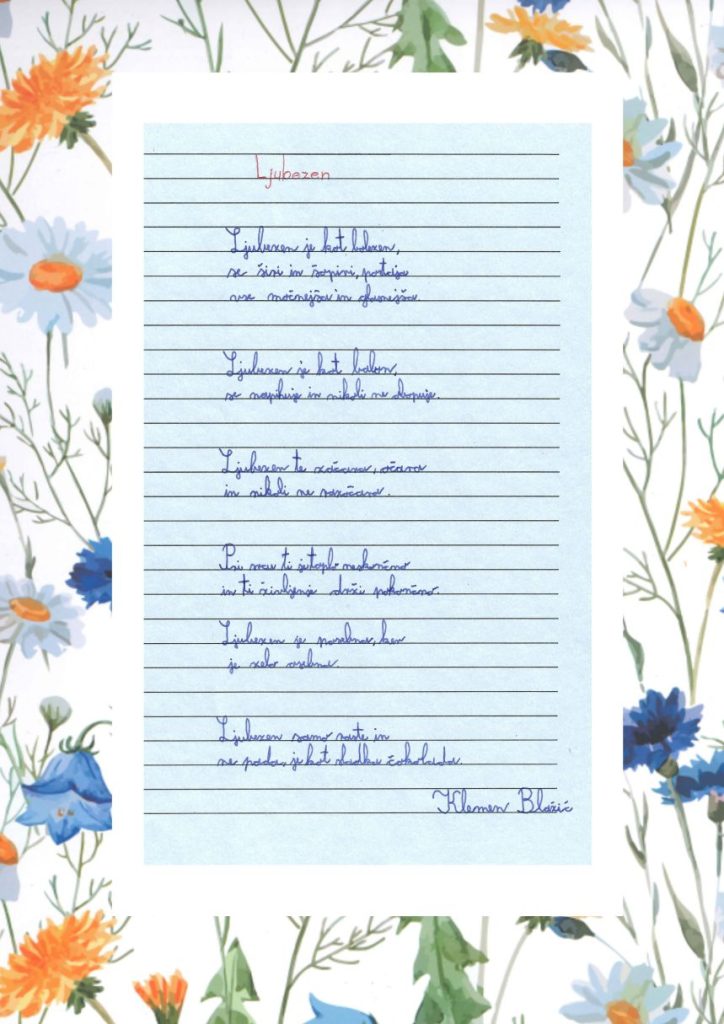 Ljubezen
Ljubezen je kot bolezen,
se širi in šopiri, postaja
vse močnejša in glasnejša.
Ljubezen je kot balon,
se napihuje in nikoli ne obupuje.
Ljubezen te začara, očara
in nikoli ne razočara.
Pri srcu ti je toplo neskončno
in ti življenje drži pokončno.
Ljubezen je posebna, ker
je zelo osebna.
Ljubezen samo raste in
ne pada, je kot sladka čokolada.
Klemen Blažič